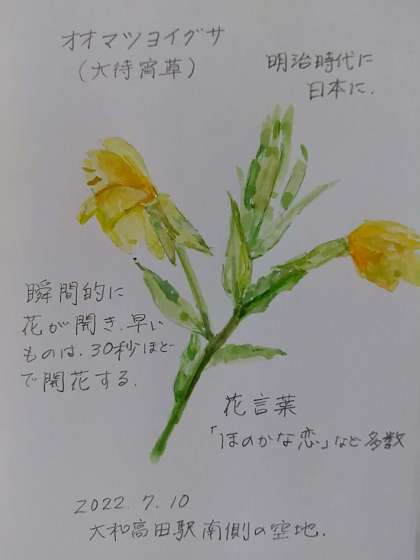 オオマツヨイグサ
(大待宵草)
明治時代に
日本に.
瞬間的に
花が開き.早い
ものは.30秒ほど
で開花する.
花言葉
「ほのかな恋」など多数
2022.7.10
大和高田駅南側の空地.